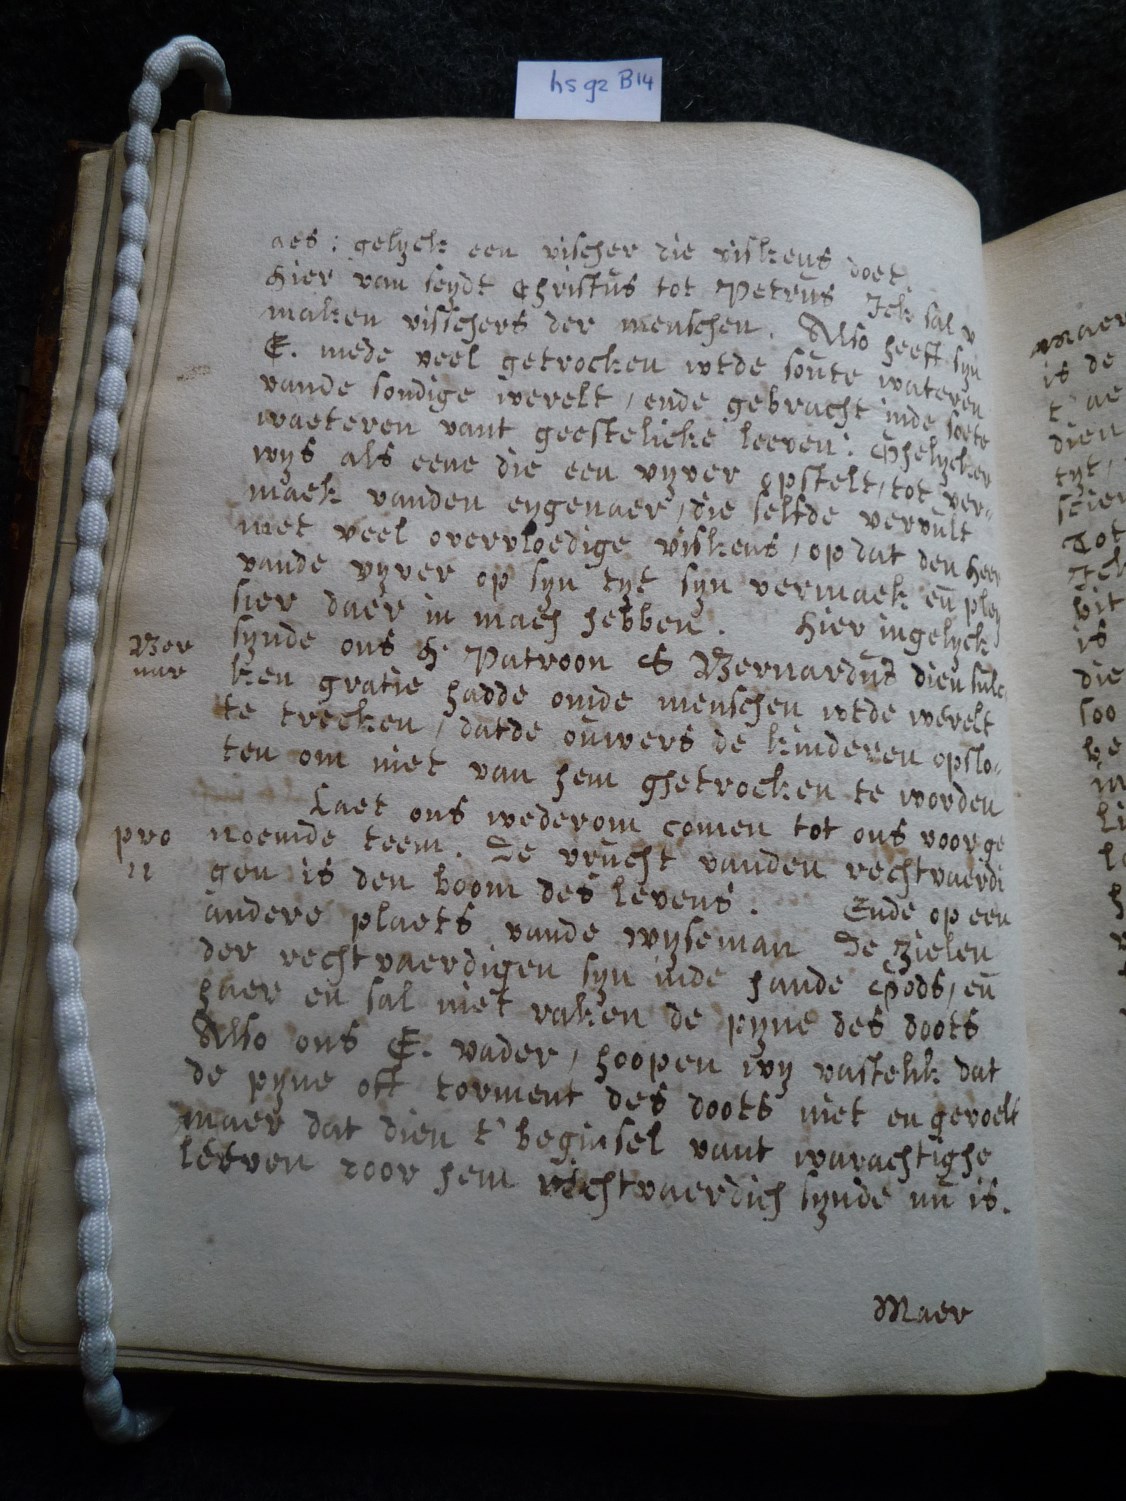 hs gz B14
aes: gelyck een vischer die viskens doet.
hier van seydt Christus tot Petrus Ick sal v
maken visschers der menschen. Also heeft syn
E. mede veel getrocken wtde soute wateren
vande sondige werelt, ende gebracht inde soete
waeteren vant geestelicke leeven: Ghelycker
wys als eene die een vyver opstelt, tot ver-
maek vanden eygenaer, die selfde vervult
met veel overvloedige viskens, op dat den heer
vande vyver op syn tyt syn vermaek en̄ play
sier daer in mach hebben. hier in gelyck
synde ons H. Patroon S Bernardus dien sulc
ken gratie hadde omde menschen wtde werelt
te trecken, datde ouwers de kinderen opslo-
ten om niet van hem ghetrocken te worden
Ber
nar
Laet ons wederom comen tot ons voorge
noemde teem. De vrucht vanden rechtvaerdi
gen is den boom des levens. Ende op een
andere plaets vande wyseman De zielen
der rechtvaerdigen syn inde hande Gods, en̄
haer en sal niet raken de pyne des doots
Also ons E. vader, hoopen wy vastelik dat
de pyne oft torment des doots niet en gevoelt
maer dat dien t'beginsel vant warachtighe
leeven voor hem rechtvaerdich synde nu is.
pro
11
Maer
maer
is de
t' ae
dien
tyt,
bit
is
die
soo
be
in
li